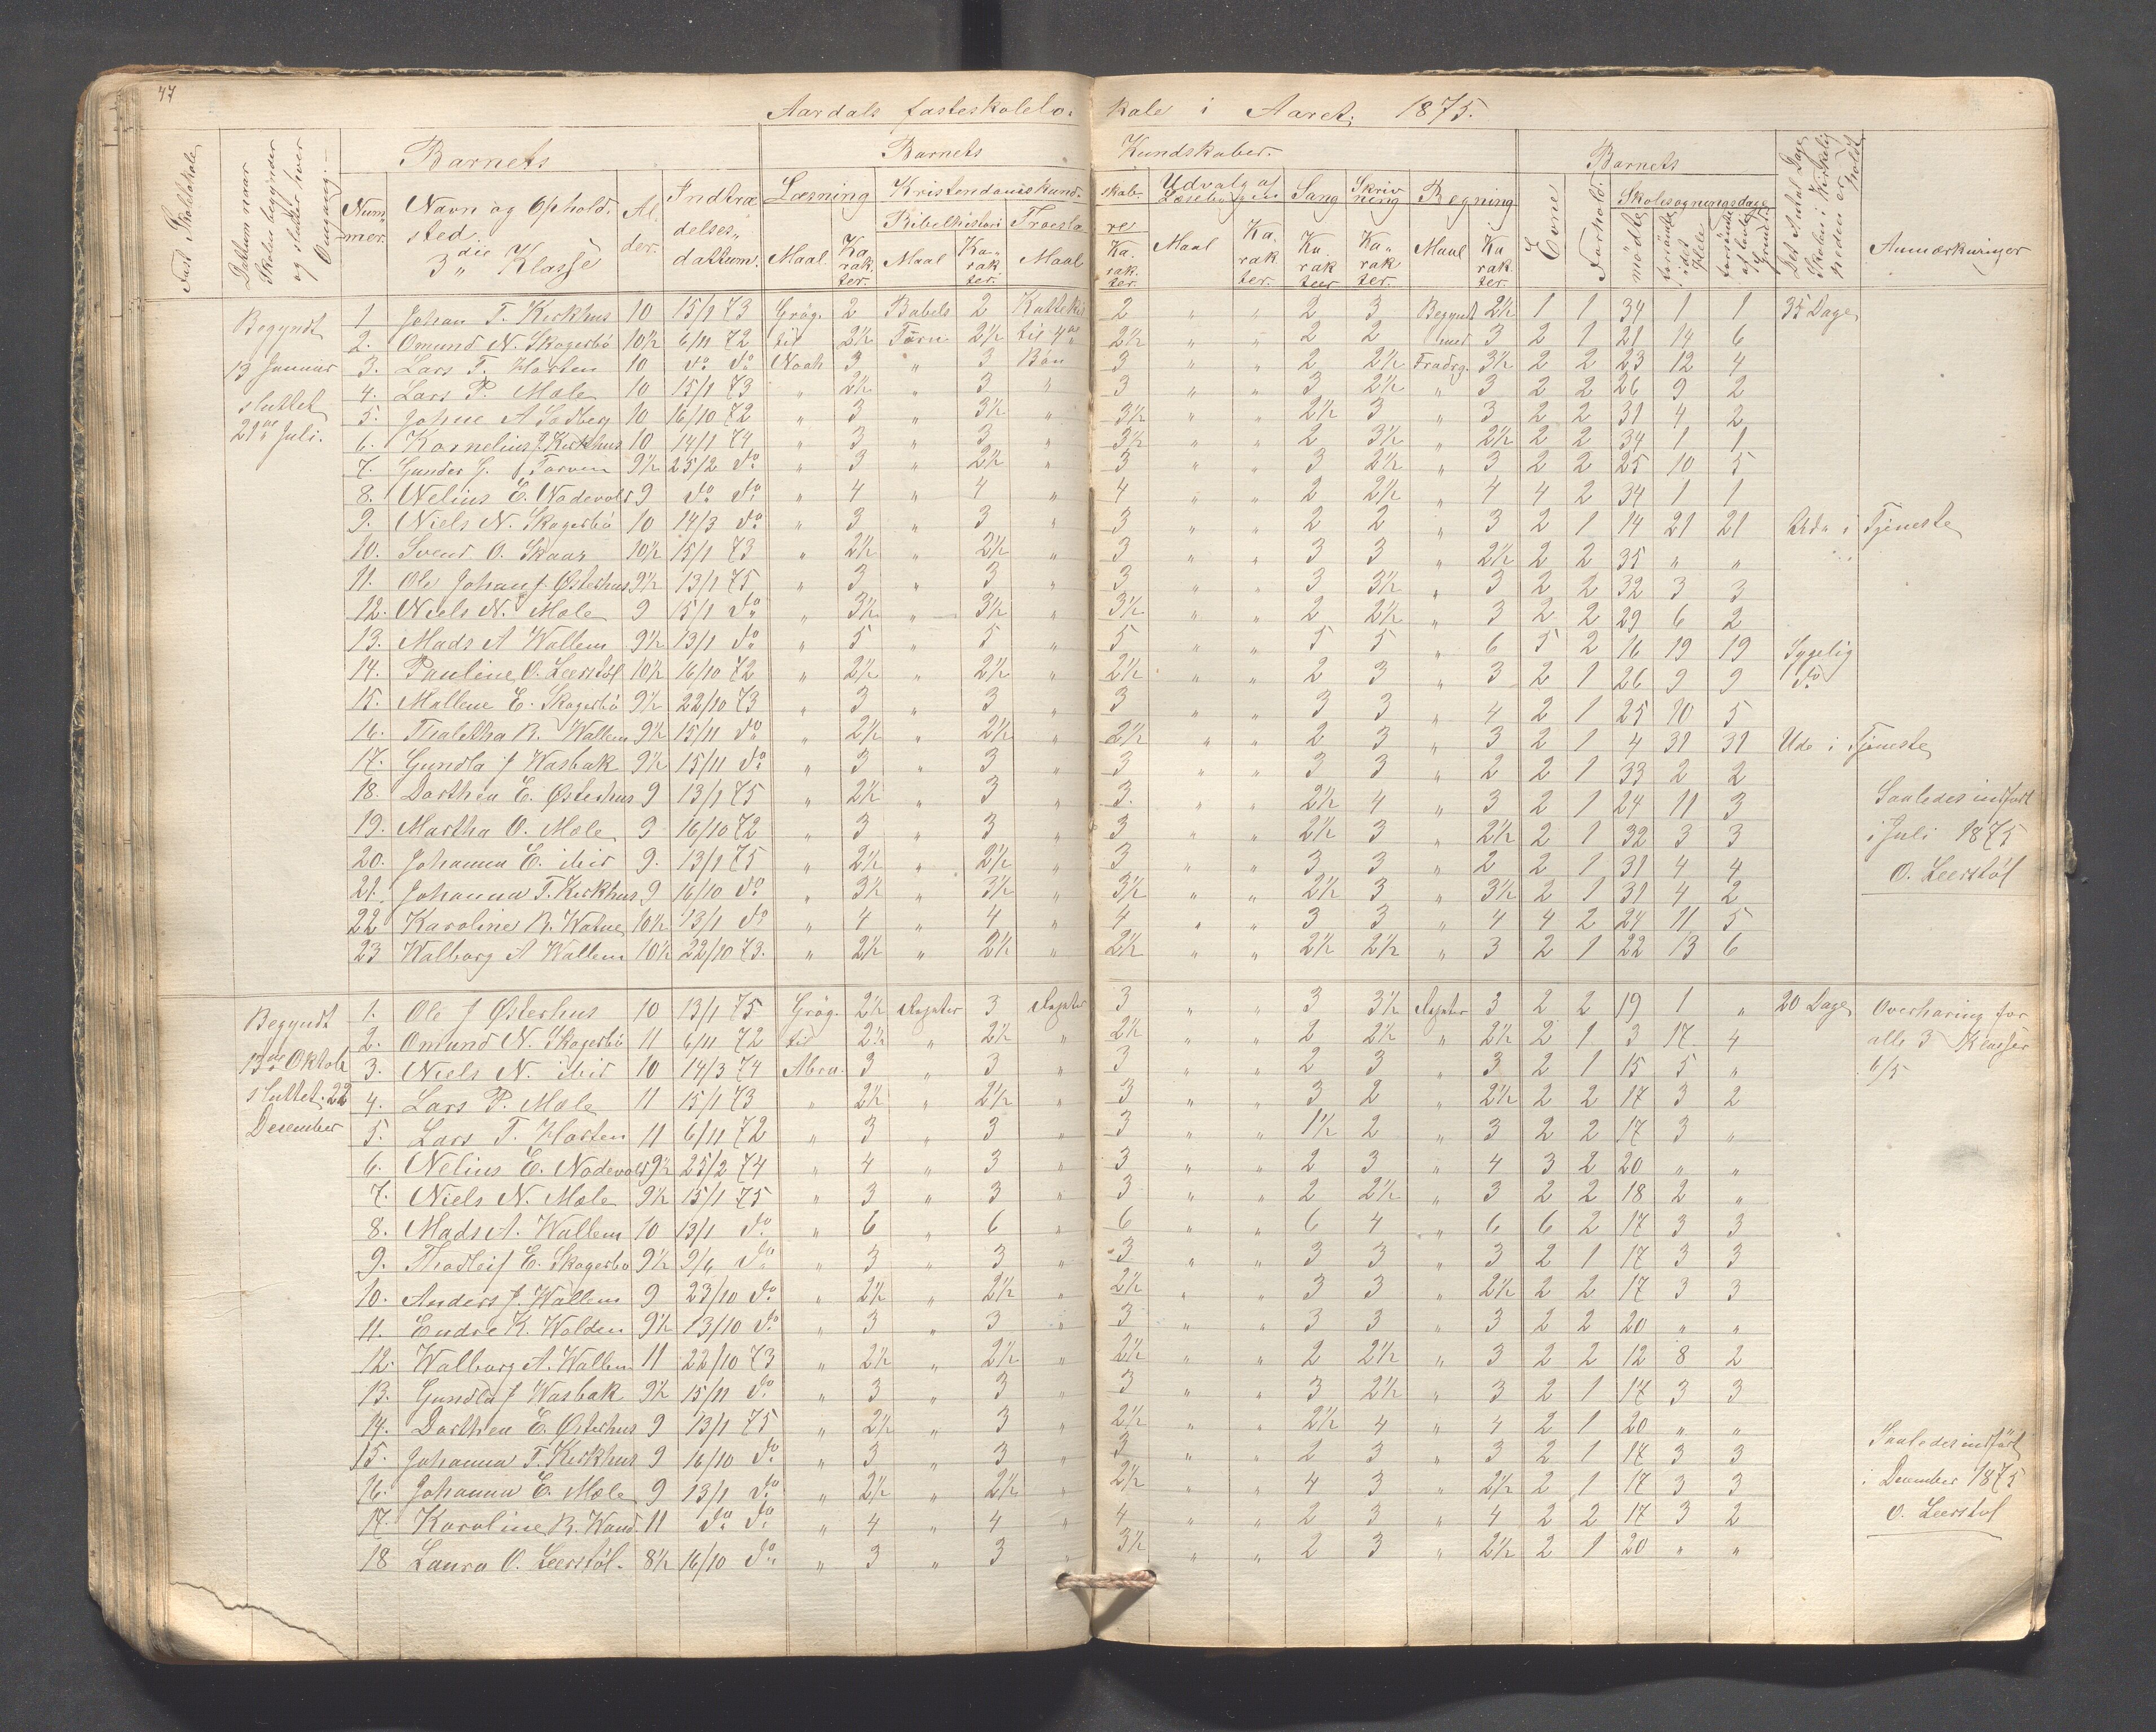 47
Aardals fasteskolelokale i Aaret 1875.
Fast Skolelokale
Dattum naar Skolen begynder og slutter hver Omgang.
Barnets
Nummer.
Navn og Opholdssted
3die Klasse
Alder.
Indtrædelsesdattum.
Barnets Kundskaber.
Læsning Maal Karakter.
Kristendomskundskab.
Bibelhistori Maal Karakter.
Troeslære Maal Karakter.
Udvalg af Læsebogen Maal Karakter.
Sang Karakter
Skrivning Karakter.
Regning Maal Karakter.
Barnets
Evne
Forhold.
Skolesøgningsdage
mødte
forsømte i det Hele
forsømte af lovlig Grund.
Det Antal Dage Skolen i Virkelig heden er holdt
Anmærkninger
Begyndt 13 Januar sluttet 21de Juli.
1 Johan T. Kirkhus 10 15/1 73 Grøg. 2 Babels 2 Kattekis 2 " " 2 3 Begyndt 2½ 1 1 34 1 1 35 Dage
2. Omund N. Skogerbø 10½ 6/11 72 til 2½ Tårn 2½ til 4de 2½ " " 2 2 med 3 2 1 21 14 6
3. Lars T. Hosten 10 do do Noah 3 " 3 Bøn 3 " " 2 2½ Fradrg. 3½ 2 2 23 12 4
4. Lars P. Mæle 10 15/1 73 " 2½ " 3 " 3 " " 3 2½ " 3 2 2 26 9 2
5. Johne A Sodberg 10 16/10 72 " 3 " 3½ " 3½ " " 2½ 3 " 3 2 2 31 4 2
6. Kornelius J. Kirkhus 10 14/1 74 " 3 " 3 " 3½ " " 2 3½ " 2½ 2 2 34 1 1
7. Gunder G. Torven 9½ 25/2 do " 3 " 2½ " 3 " " 3 2½ " 3 2 2 25 10 5
8. Nelius E. Nodevold 9 do do " 4 " 4 " 4 " " 2 2½ " 4 4 2 34 1 1
9. Niels N. Skogerbø 10 14/3 do " 3 " 3 " 3 " " 2 2 " 3 2 1 14 21 21 Ude i Tjeneste
10. Svend O. Skaar 10½ 15/1 73 " 2½ " 2½ " 3 " " 3 3 " 2½ 2 2 35 " "
11. Ole Johan J. Østerhus 9½ 13/1 75 " 3 " 3 " 3 " " 3 3½ " 3 2 2 32 3 3
12. Niels N. Mæle 9 15/1 do " 3½ " 3½ " 3½ " " 2 2½ " 3 2 2 29 6 2
13. Mads A Wallem 9½ 13/1 do " 5 " 5 " 5 " " 5 5 " 6 5 2 16 19 19 Sygelig
14. Pauline O. Leerstøl 10½ 16/10 72 " 2½ " 2½ " 2½ " " 2 3 " 3 2 1 26 9 9 do
15. Mallene E. Skogerbø 9½ 22/10 73 " 3 " 3 " 3 " " 3 3 " 4 2 1 25 10 5
16. Thaletha R. Wallem 9½ 15/11 do " 2½ " 2½ " 2½ " " 2 3 " 3 2 1 4 31 31 Ude i Tjeneste
17. Gundla J Wasbak 9½ 15/11 do " 3 " 3 " 3 " " 3 3 " 2 2 1 33 2 2
18. Dorthea E. Østerhus 9 13/1 75 " 2½ " 3 " 3. " " 2½ 4 " 3 2 1 24 11 3
19. Martha O. Mæle 9 16/10 72 " 3 " 3 " 3 " " 2½ 3 " 2½ 2 1 32 3 3
20. Johanna E. ibid 9. 13/1 75 " 2½ " 2½ " 3 " " 3 3 " 2 2 1 31 4 4
21. Johanna T. Kirkhus 9 16/10 do " 3½ " 3½ " 3½ " " 2½ 3 " 3½ 2 1 31 4 2
22 Karoline R. Watne 10½ 13/1 do " 4 " 4 " 4 " " 3 3 " 4 4 2 24 11 5
23 Walborg A Wallem 10½ 22/10 73. " 2½ " 2½ " 2½ " " 2½ 2½ " 3 2 1 22 13 6
Saaledes indført
i Juli 1875
O. Leerstøl
Begyndt 13de Oktob sluttet. 22 December
1. Ole J Østerhus 10 13/1 75 Grøg. 2½ Repeter 3 Repeter 3 " " 3 3½ Repeter 3 2 2 19 1 " 20 Dage
2. Omund N. Skogerbø 11 6/11 72 til 2½ " 2½ " 2½ " " 2 2½ " 2½ 2 1 3 17 4
3. Niels N. ibid 10 14/3 74 Abra. 3 " 3 " 3 " " 2 3 " 3 2 1 15 5 "
4. Lars P. Mæle 11 15/1 73 " 2½ " 2½ " 3 " " 3 2 " 2½ 2 2 17 3 2
5. Lars T. Hosten 11 6/11 72 " 3 " 3 " 3 " " 1½ 2 " 3 2 2 17 3 "
6. Nelius E. Nodevold 9½ 25/2 74 " 4 " 3 " 3 " " 2 3 " 4 3 2 20 " "
7. Niels N. Mæle 9½ 15/1 75 " 3 " 3 " 3 " " 2 2½ " 3 2 2 18 2 "
8. Mads A. Wallem 10 13/1 do " 6 " 6 " 6 " " 6 4 " 6 6 2 17 3 3
9. Thodleif E. Skogerbø 9½ 9/6 do " 3 " 3 " 3 " " 3 3 " 3 2 1 17 3 3
10. Anders J. Wallem 9 23/10 do " 2½ " 2½ " 2½ " " 3 3 " 2½ 2 2 17 3 3
11. Endre K. Wolden 9½ 13/10 do " 3 " 3 " 3 " " 3 3 " 3 2 2 20 " "
12. Walborg A. Wallem 11 22/10 73 " 2½ " 2½ " 2½ " " 2 2½ " 3 2 2 12 8 2
13. Gundla J Wasbak 9½ 15/11 do " 3 " 3 " 3 " " 3 2½ " 3 2 1 17 3 3
14. Dorthea E. Østerhus 9 13/1 75 " 2½ " 3 " 2½ " " 2½ 4 " 4 2 1 20 " "
15. Johanna T. Kirkhus 9 16/10 do " 3 " 3 " 3 " " 2 3 " 3 2 1 17 3 3
16. Johanna E. Mæle 9 13/1 do " 2½ " 2½ " 2½ " " 4 3 " 2½ 2 1 17 3 3
17. Karoline R. 11 do do " 4 " 4 " 4 " " 2 3 " 4 2 2 17 3 2
18 Laura O. Leerstøl. 8½ 16/10 do " 3 " 3 " 3½ " " 2 3 " 2½ 2 1 20 " "
Overhøring for
alle 3 Klasser
6/5
Saaledes indført
i December 1875
O. Leerstøl